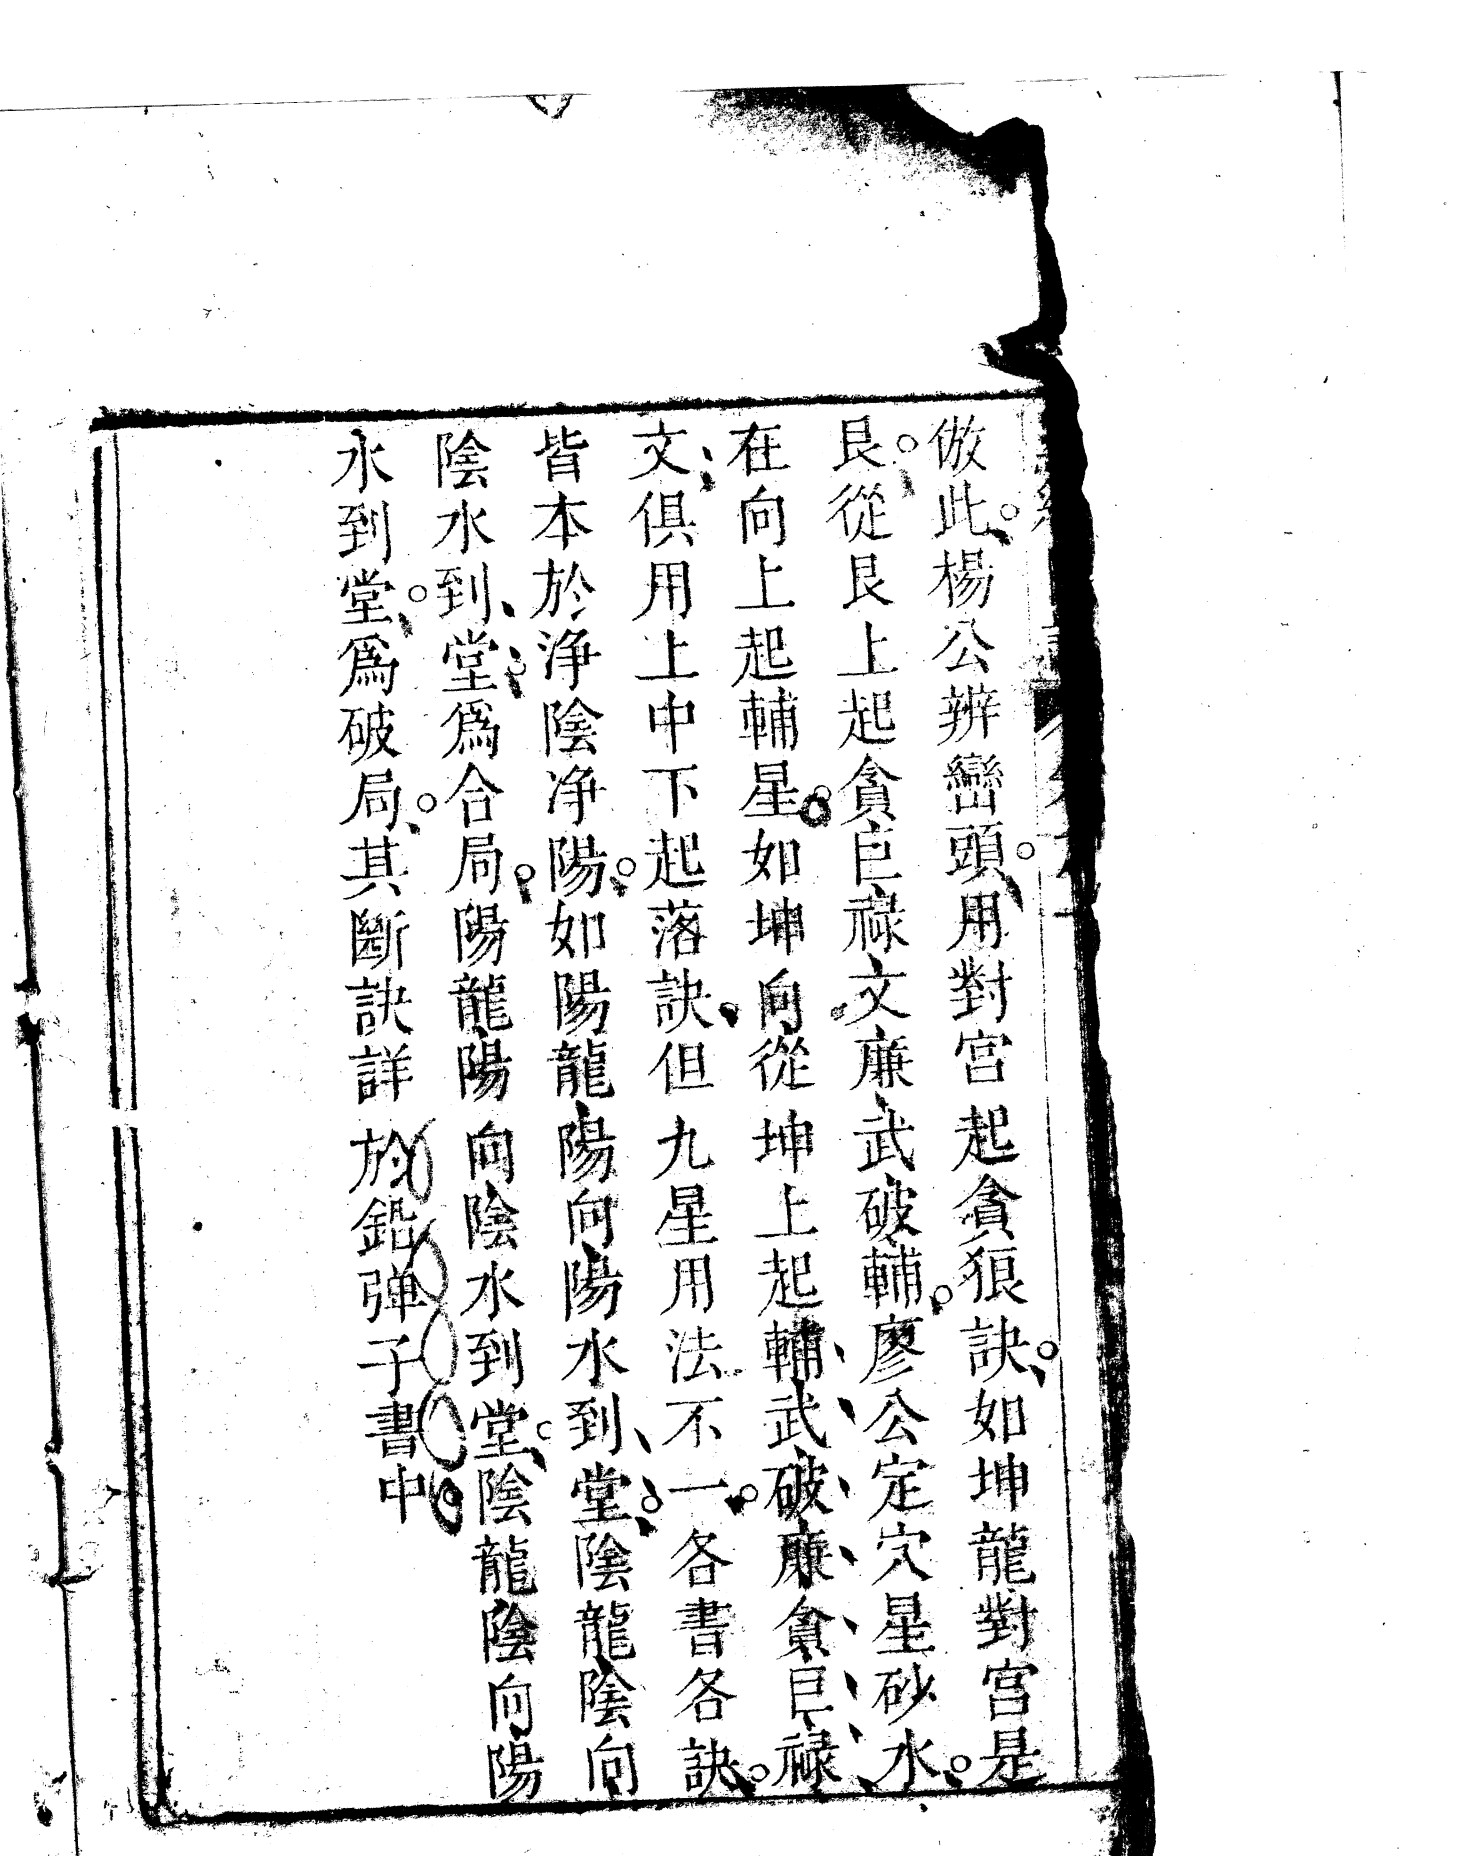 倣此楊公辨巒頭用對宮起貪狼訣如坤龍對宮是
艮從艮上起貪巨祿文廉武破輔廖公定穴星砂水
在向上起輔星如坤向從坤上起輔武破廉貪巨祿
文俱用上中下起落訣但九星用法不一各書各訣
皆本於淨陰净陽如陽龍陽向陽水到堂陰龍陰向
陰水到堂爲合局陽龍陽向陰水到堂陰龍陰向陽
水到堂爲破局其斷訣詳於鉛弹子書中